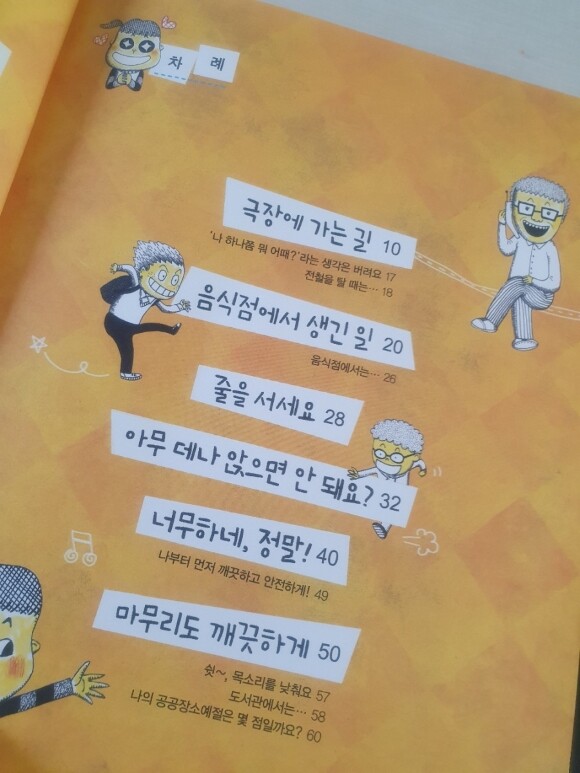 차례
극장에 가는 길 10
'나 하나쯤 뭐 어때?'라는 생각은 버려요 17
전철을 탈 때는… 18
음식점에서 생긴 일 20
음식점에서는… 26
줄을 서세요 28
아무 데나 앉으면 안 돼요? 32
너무하네, 정말! 40
나부터 먼저 깨끗하고 안전하게! 49
마무리도 깨끗하게 50
쉿~, 목소리를 낮춰요 57
도서관에서는… 58
나의 공공장소예절은 몇 점일까요? 60